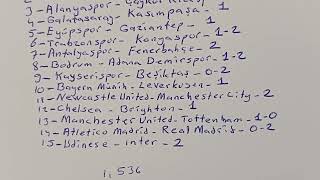 3-Alanyaspor-Çaykur
4-Galatasaray-Kasımpaşa-1
5-Eyüpspor-Gaziantep-1
6-Trabzonspor-Konyaspor-1-2
7-Antalyaspor-Fenerbahçe-2
8-Bodrum-Adana Demirspor-1-2
9-Kayserispor-Beşiktaş-0-2
10-Bayern Münih-Leverkusen-1
11-Newcastle United-Manchester City-2
12-Chelsea-Brighton-1
13-Manchester United-Tottenham-1-0
14-Atletico Madrid-Real Madrid-0-2
15-Udinese-inter-2
1,536